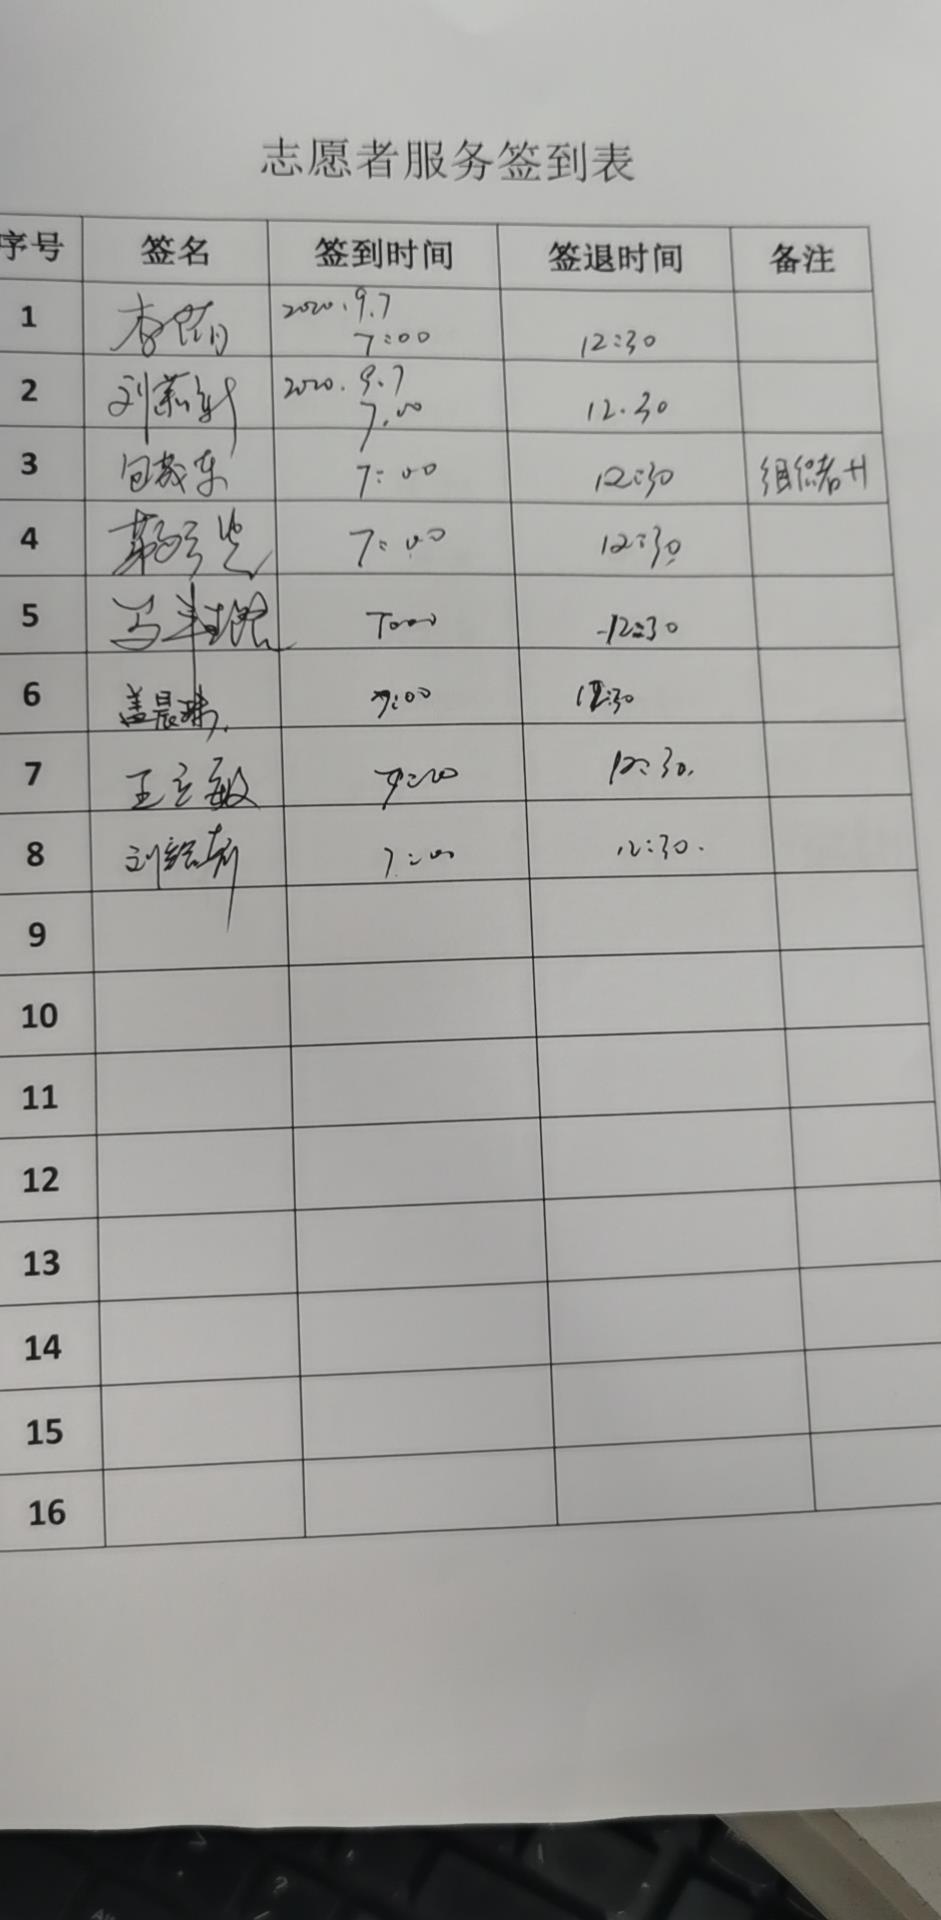 志愿者服务签到表
序号 签名 签到时间 签退时间 备注
1 2020.9.7
7:00 12:30
2 刘 2020.9.7
7.00 12.30
3 7:00 12:30 组织者
4 7:00 12:30
5 马 12:30
6 盖晨 7:00 12:30
7 王立敏 7:00 12:30.
8 刘 7:00 12:30.
9
10
11
12
13
14
15
16